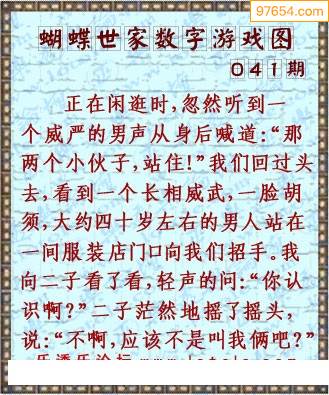 97654.com
蝴蝶世家数字游戏图
041期
正在闲逛时,忽然听到一
个威严的男声从身后喊道:“那
两个小伙子,站住!”我们回过头
去,看到一个长相威武,一脸胡
须,大约四十岁左右的男人站在
一间服装店门口向我们招手。我
向二子看了看,轻声的问:“你认
识啊?”二子茫然地摇了摇头,
说:“不啊,应该不是叫我俩吧?”